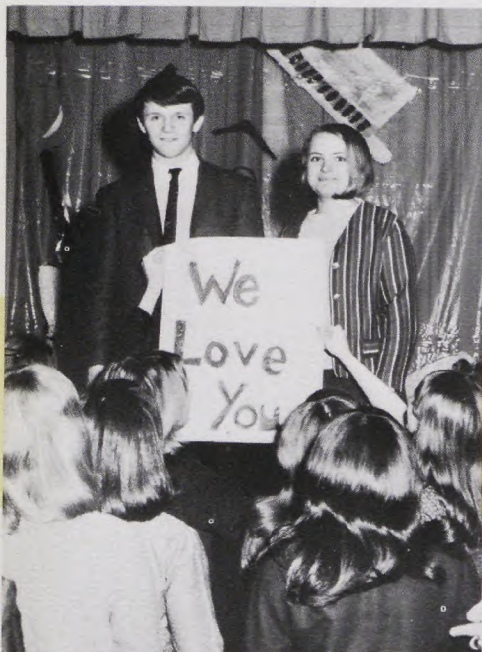 We
Love
You